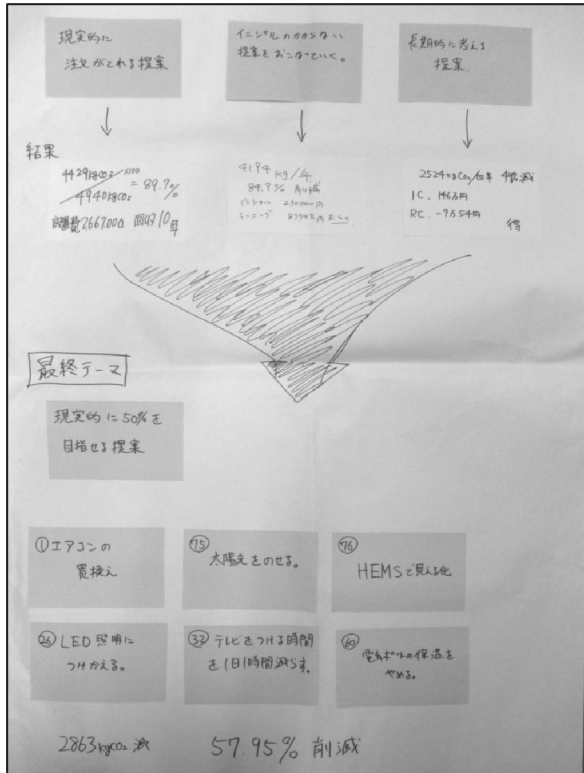 現実的に
注文がとれる提案
イニシャルのかからない
提案をおこなっていく。
長期的に考える
提案.
結果
4429kgCO2 ×100
4940kgCO2
= 89.7%
2,667,000 10年
4194 kg/年
84.9% 削減
2524kgCO2/年 減
IC. 146万円
RC. -7554円
得
最終テーマ
現実的に50%を
目指せる提案
①エアコンの
買換え
75 太陽光をのせる。
76
HEMSで見える化
26 LED照明に
つけかえる。
32 テレビをつける時間
を1日1時間減らす。
60
電気ポットの保温を
やめる。
2863kgCO2 減
57.95% 削減